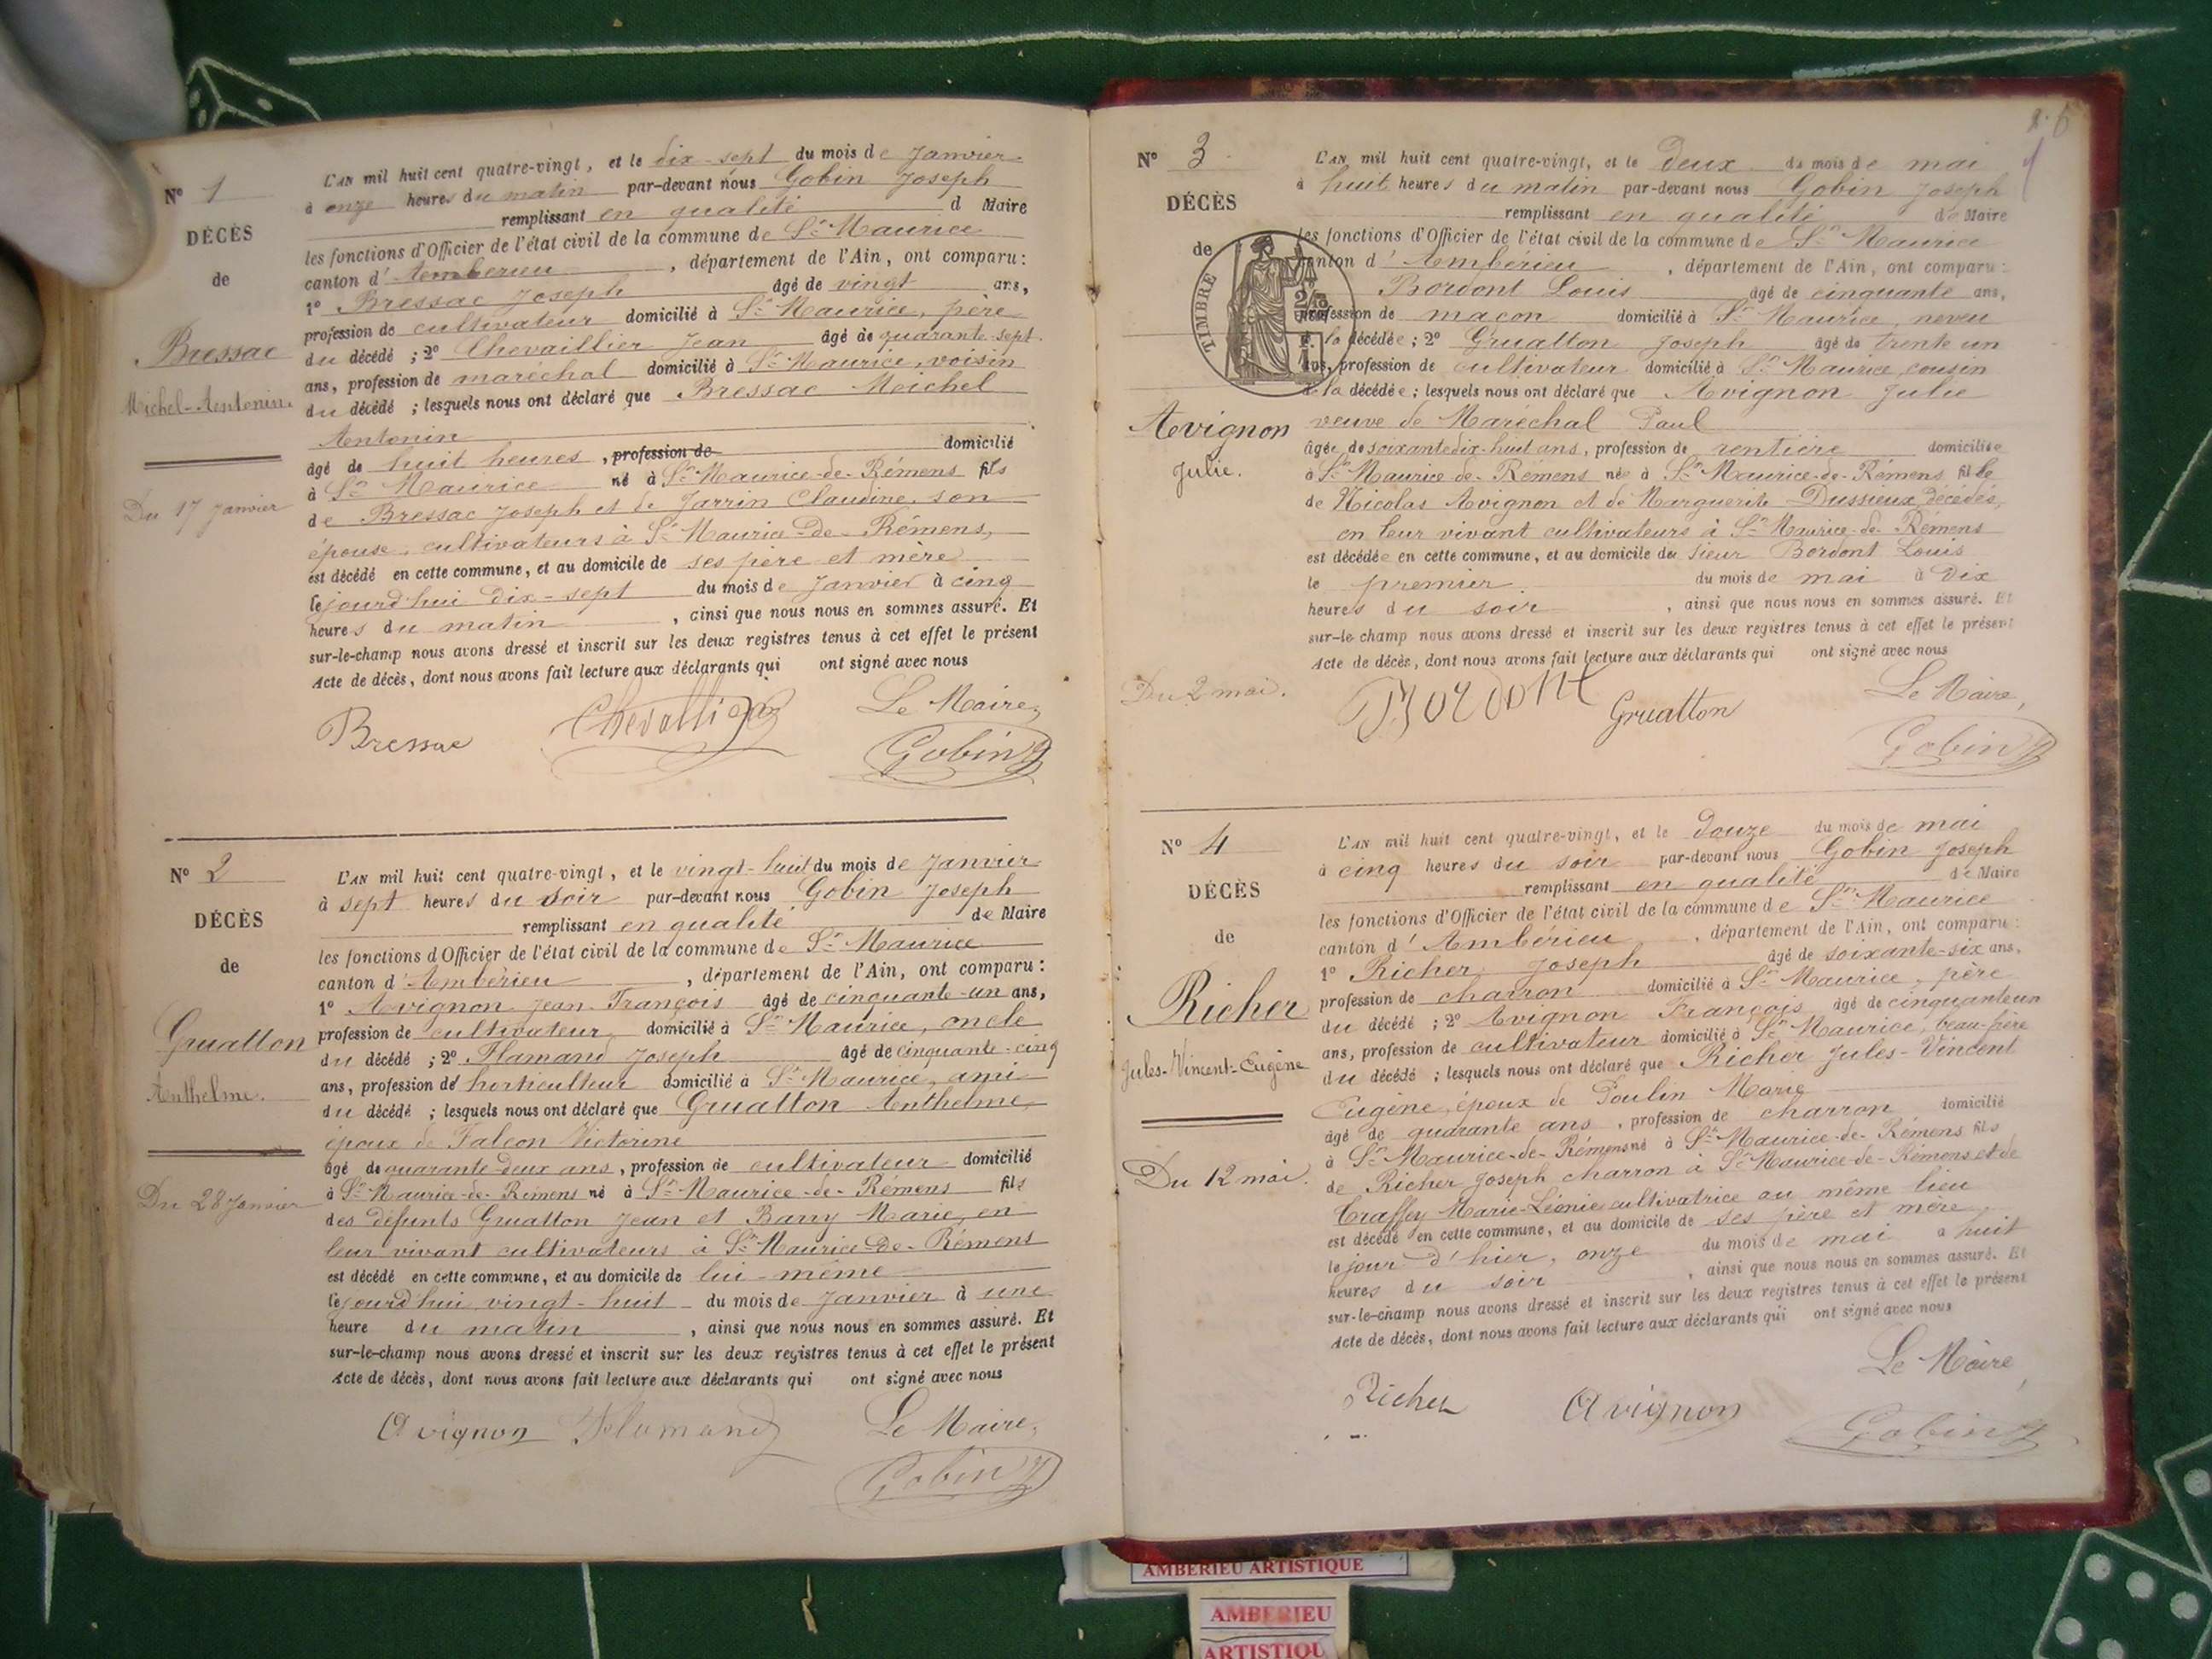 N° 1
DÉCÈS
de
Bressac
Michel-Antonin.
Du 17 Janvier
L'AN mil huit cent quatre-vingt, et le dix-sept du mois de Janvier
à onze heures du matin par-devant nous Gobin Joseph
remplissant en qualité d Maire
les fonctions d'Officier de l'état civil de la commune de St Maurice
canton d'Ambérieu, département de l'Ain, ont comparu:
1° Bressac Joseph âgé de vingt ans,
profession de cultivateur domicilié à St Maurice, père
du décédé ; 2° Chevaillier Jean âgé de quarante-sept
ans, profession de maréchal domicilié à St Maurice, voisin
du décédé ; lesquels nous ont déclaré que Bressac Michel
Antonin
âgé de huit heures, profession de domicilié
à St Maurice né à St Maurice-de-Rémens fils
de Bressac Joseph et de Jarrin Claudine, son
épouse, cultivateurs à St Maurice-de-Rémens,
est décédé en cette commune, et au domicile de ses père et mère
lejourd'hui dix-sept du mois de Janvier à cinq
heures du matin, ainsi que nous nous en sommes assuré. Et
sur-le-champ nous avons dressé et inscrit sur les deux registres tenus à cet effet le présent
Acte de décès, dont nous avons fait lecture aux déclarants qui ont signé avec nous
Le Maire,
Bressac Chevallier Gobin J
N° 2
DÉCÈS
de
Gruatton
Anthelme.
Du 28 Janvier
L'AN mil huit cent quatre-vingt, et le vingt-huit du mois de Janvier
à sept heures du soir par-devant nous Gobin Joseph
remplissant en qualité de Maire
les fonctions d'Officier de l'état civil de la commune de St Maurice
canton d'Ambérieu, département de l'Ain, ont comparu:
1° Avignon Jean-François âgé de cinquante-un ans,
profession de cultivateur domicilié à St Maurice, oncle
du décédé ; 2° Flamand Joseph âgé de cinquante-cinq
ans, profession de horticulteur domicilié à St Maurice, ami
du décédé ; lesquels nous ont déclaré que Gruatton Anthelme,
époux de Falcon Victorine
âgé de quarante-deux ans, profession de cultivateur domicilié
à St Maurice-de-Rémens né à St Maurice-de-Rémens fils
des défunts Gruatton Jean et Barry Marie, en
leur vivant cultivateurs à St Maurice-de-Rémens
est décédé en cette commune, et au domicile de lui-même
lejourd'hui vingt-huit du mois de Janvier à une
heure du matin, ainsi que nous nous en sommes assuré. Et
sur-le-champ nous avons dressé et inscrit sur les deux registres tenus à cet effet le présent
Acte de décès, dont nous avons fait lecture aux déclarants qui ont signé avec nous
Avignon Flamand Le Maire,
Gobin J
N° 3
DÉCÈS
de
TIMBRE
Avignon
Julie.
Du 2 mai.
L'AN mil huit cent quatre-vingt, et le deux du mois de mai
à huit heures du matin par-devant nous Gobin Joseph
remplissant en qualité de Maire
les fonctions d'Officier de l'état civil de la commune de St Maurice
canton d'Ambérieu, département de l'Ain, ont comparu:
Bordont Louis âgé de cinquante ans,
profession de maçon domicilié à St Maurice, neveu
de la décédée ; 2° Gruatton Joseph âgé de trente un
ans, profession de cultivateur domicilié à St Maurice, cousin
de la décédée ; lesquels nous ont déclaré que Avignon Julie
veuve de Maréchal Paul
âgée de soixante dix-huit ans, profession de rentière domiciliée
à St Maurice-de-Rémens née à St Maurice-de-Rémens fille
de Nicolas Avignon et de Marguerite Dussieux, décédés,
en leur vivant cultivateurs à St Maurice-de-Rémens
est décédée en cette commune, et au domicile du sieur Bordont Louis
le premier du mois de mai à dix
heures du soir, ainsi que nous nous en sommes assuré. Et
sur-le-champ nous avons dressé et inscrit sur les deux registres tenus à cet effet le présent
Acte de décès, dont nous avons fait lecture aux déclarants qui ont signé avec nous
Bordont Gruatton Le Maire,
Gobin J
N° 4
DÉCÈS
de
Richer
Jules-Vincent-Eugène
Du 12 mai.
L'AN mil huit cent quatre-vingt, et le douze du mois de mai
à cinq heures du soir par-devant nous Gobin Joseph
remplissant en qualité de Maire
les fonctions d'Officier de l'état civil de la commune de St Maurice
canton d'Ambérieu, département de l'Ain, ont comparu:
1° Richer Joseph âgé de soixante-six ans,
profession de charron domicilié à St Maurice, père
du décédé ; 2° Avignon François âgé de cinquante un
ans, profession de cultivateur domicilié à St Maurice, beau-frère
du décédé ; lesquels nous ont déclaré que Richer Jules-Vincent
Eugène, époux de Poulin Marie
âgé de quarante ans, profession de charron domicilié
à St Maurice-de-Rémens né à St Maurice-de-Rémens fils
de Richer Joseph charron à St Maurice-de-Rémens et de
Marie-Léonie cultivatrice au même lieu
est décédé en cette commune, et au domicile de ses père et mère
le jour d'hier, onze du mois de mai à huit
heures du soir, ainsi que nous nous en sommes assuré. Et
sur-le-champ nous avons dressé et inscrit sur les deux registres tenus à cet effet le présent
Acte de décès, dont nous avons fait lecture aux déclarants qui ont signé avec nous
Le Maire,
Richer Avignon Gobin J
AMBERIEU ARTISTIQUE
AMBERIEU
ARTISTIQU